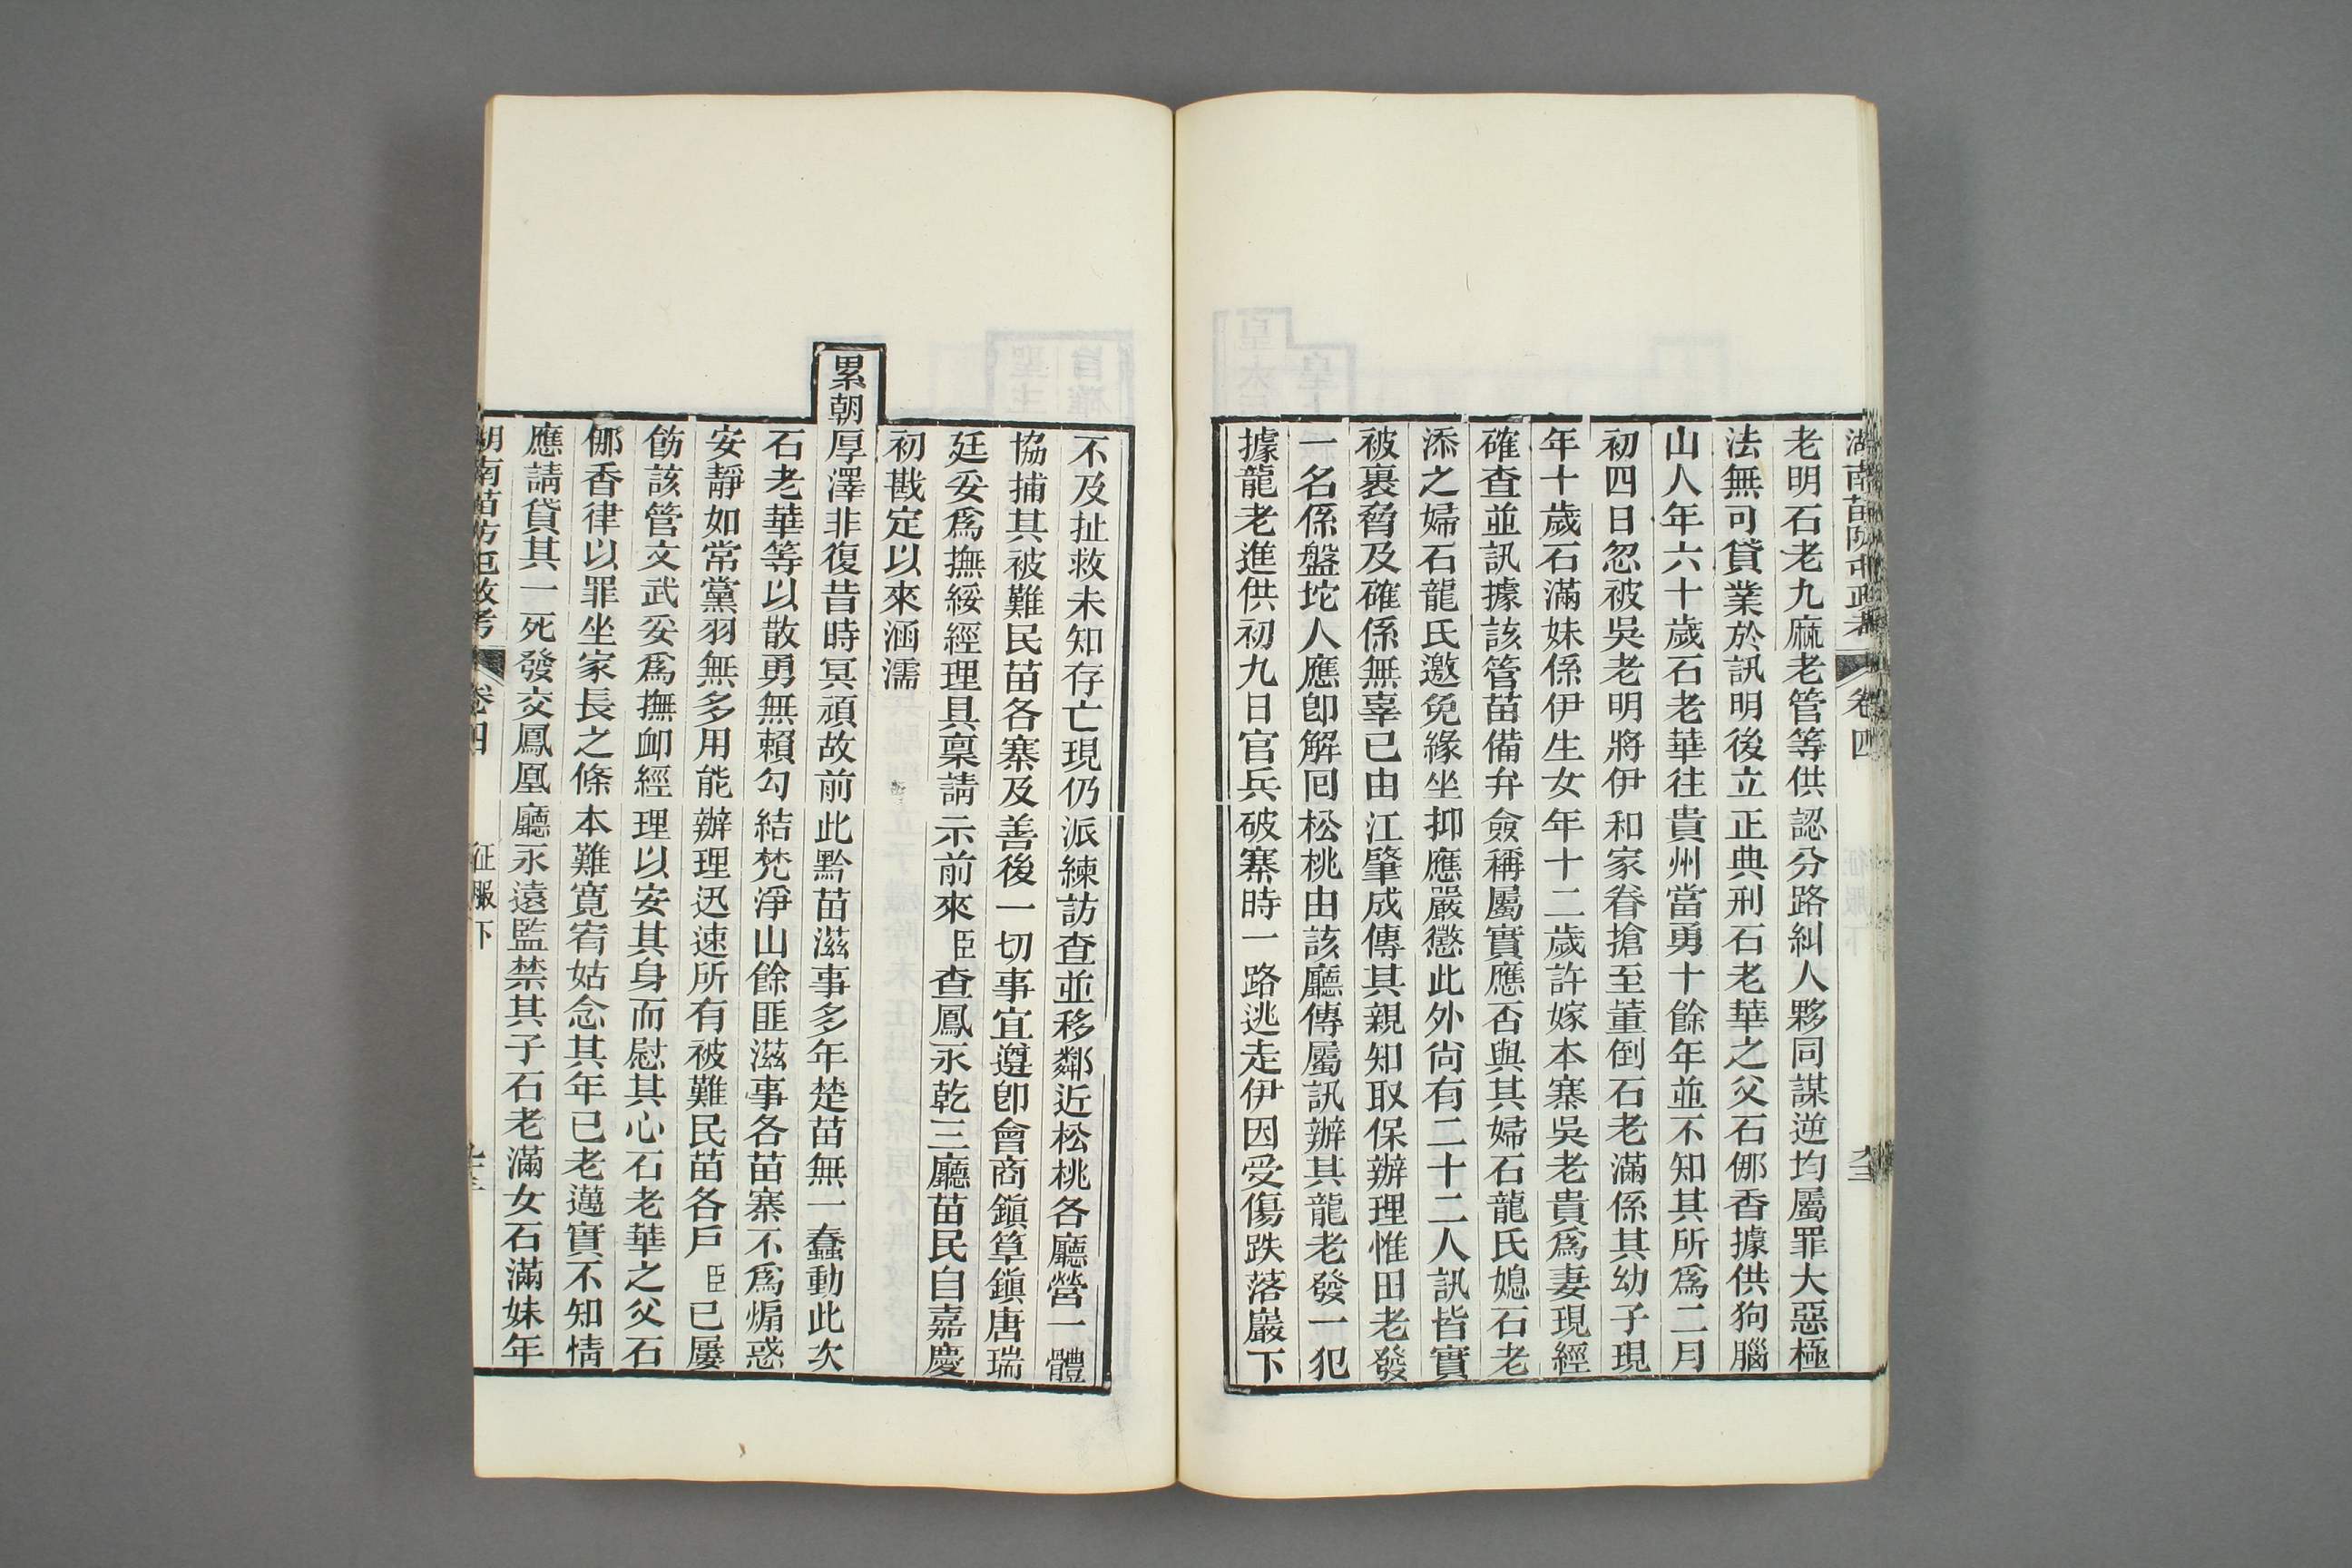 湖南苗防屯政考 卷四 九三
老明石老九麻老管等供認分路糾人夥同謀逆均屬罪大惡極
法無可貸業於訊明後立正典刑石老華之父石𨚗香據供狗腦
山人年六十歲石老華往貴州當勇十餘年並不知其所爲二月
初四日忽被吳老明將伊和家眷搶至董倒石老滿係其幼子現
年十歲石滿妹係伊生女年十二歲許嫁本寨吳老貴爲妻現經
確查並訊據該管苗備弁僉稱屬實應否與其婦石龍氏媳石老
添之婦石龍氏邀免緣坐抑應嚴懲此外尙有二十二人訊皆實
被裹脅及確係無辜已由江肇成傳其親知取保辦理惟田老發
一名係盤坨人應卽解囘松桃由該廳傳屬訊辦其龍老發一犯
據龍老進供初九日官兵破寨時一路逃走伊因受傷跌落巖下
不及扯救未知存亡現仍派練訪查並移鄰近松桃各廳營一體
協捕其被難民苗各寨及善後一切事宜遵卽會商鎭筸鎭唐瑞
廷妥爲撫綏經理具稟請示前來臣查鳳永乾三廳苗民自嘉慶
初戡定以來涵濡
累朝厚澤非復昔時冥頑故前此黔苗滋事多年楚苗無一蠢動此次
石老華等以散勇無賴勾結梵淨山餘匪滋事各苗寨不爲煽惑
安靜如常黨羽無多用能辦理迅速所有被難民苗各戶臣已屢
飭該管文武妥爲撫卹經理以安其身而慰其心石老華之父石
𨚗香律以罪坐家長之條本難寬宥姑念其年已老邁實不知情
應請貸其一死發交鳳凰廳永遠監禁其子石老滿女石滿妹年
湖南苗防屯政考 卷四 征服下